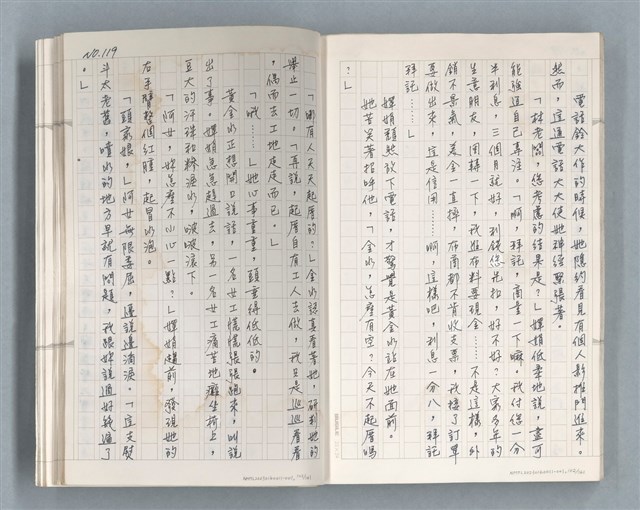 電話鈴大作的時候，她隱約看見有個人影推門進來。
然而，這通電話大大使她神經緊張著。
「林老闆，您考慮的結果是？」嫦娟低柔地說，盡可
能強迫自己專注。「啊，拜託，商量一下嘛。我付您一分
半利息，三個月就好，利錢您先扣，好不好？大家多年的
生意朋友，週轉一下，我進布料要現金……不是這樣，外
銷不景氣，美金一直掉，布商都不肯收支票，我接了訂單
要做出來，這是信用……啊，這樣吧，利息一分八，拜託
拜託……」
嫦娟頹然放下電話，才驚覺是黃金水站在她面前。
她苦笑著招呼他，「金水，怎麼有空？今天不起厝嗎
？」
NO.119
「團有人天天起厝的？」金水認真看著她，研判她的
舉止一切，「再說，起厝自有工人去做，我只是巡巡看看
，偶而去工地走走而已。」
「哦……」她心事重重，頭垂得低低的。
黃金水正想開口說話，一名女工慌慌張張跑來，叫說
出了事，嫦娟急急趕過去，另一名女工痛苦地癱坐椅上，
豆大的汗珠和粹淚水，啵啵滾下。
「阿女，妳怎麼不小心一點？」嫦娟趨前，發現她的
右手臂整個紅腫，起冒水泡。
「頭家娘，」阿女無限委屈，邊說邊滴淚。「這支熨
斗太老舊，噴水的地方早就有問題，我跟妳說過好幾遍了
。」